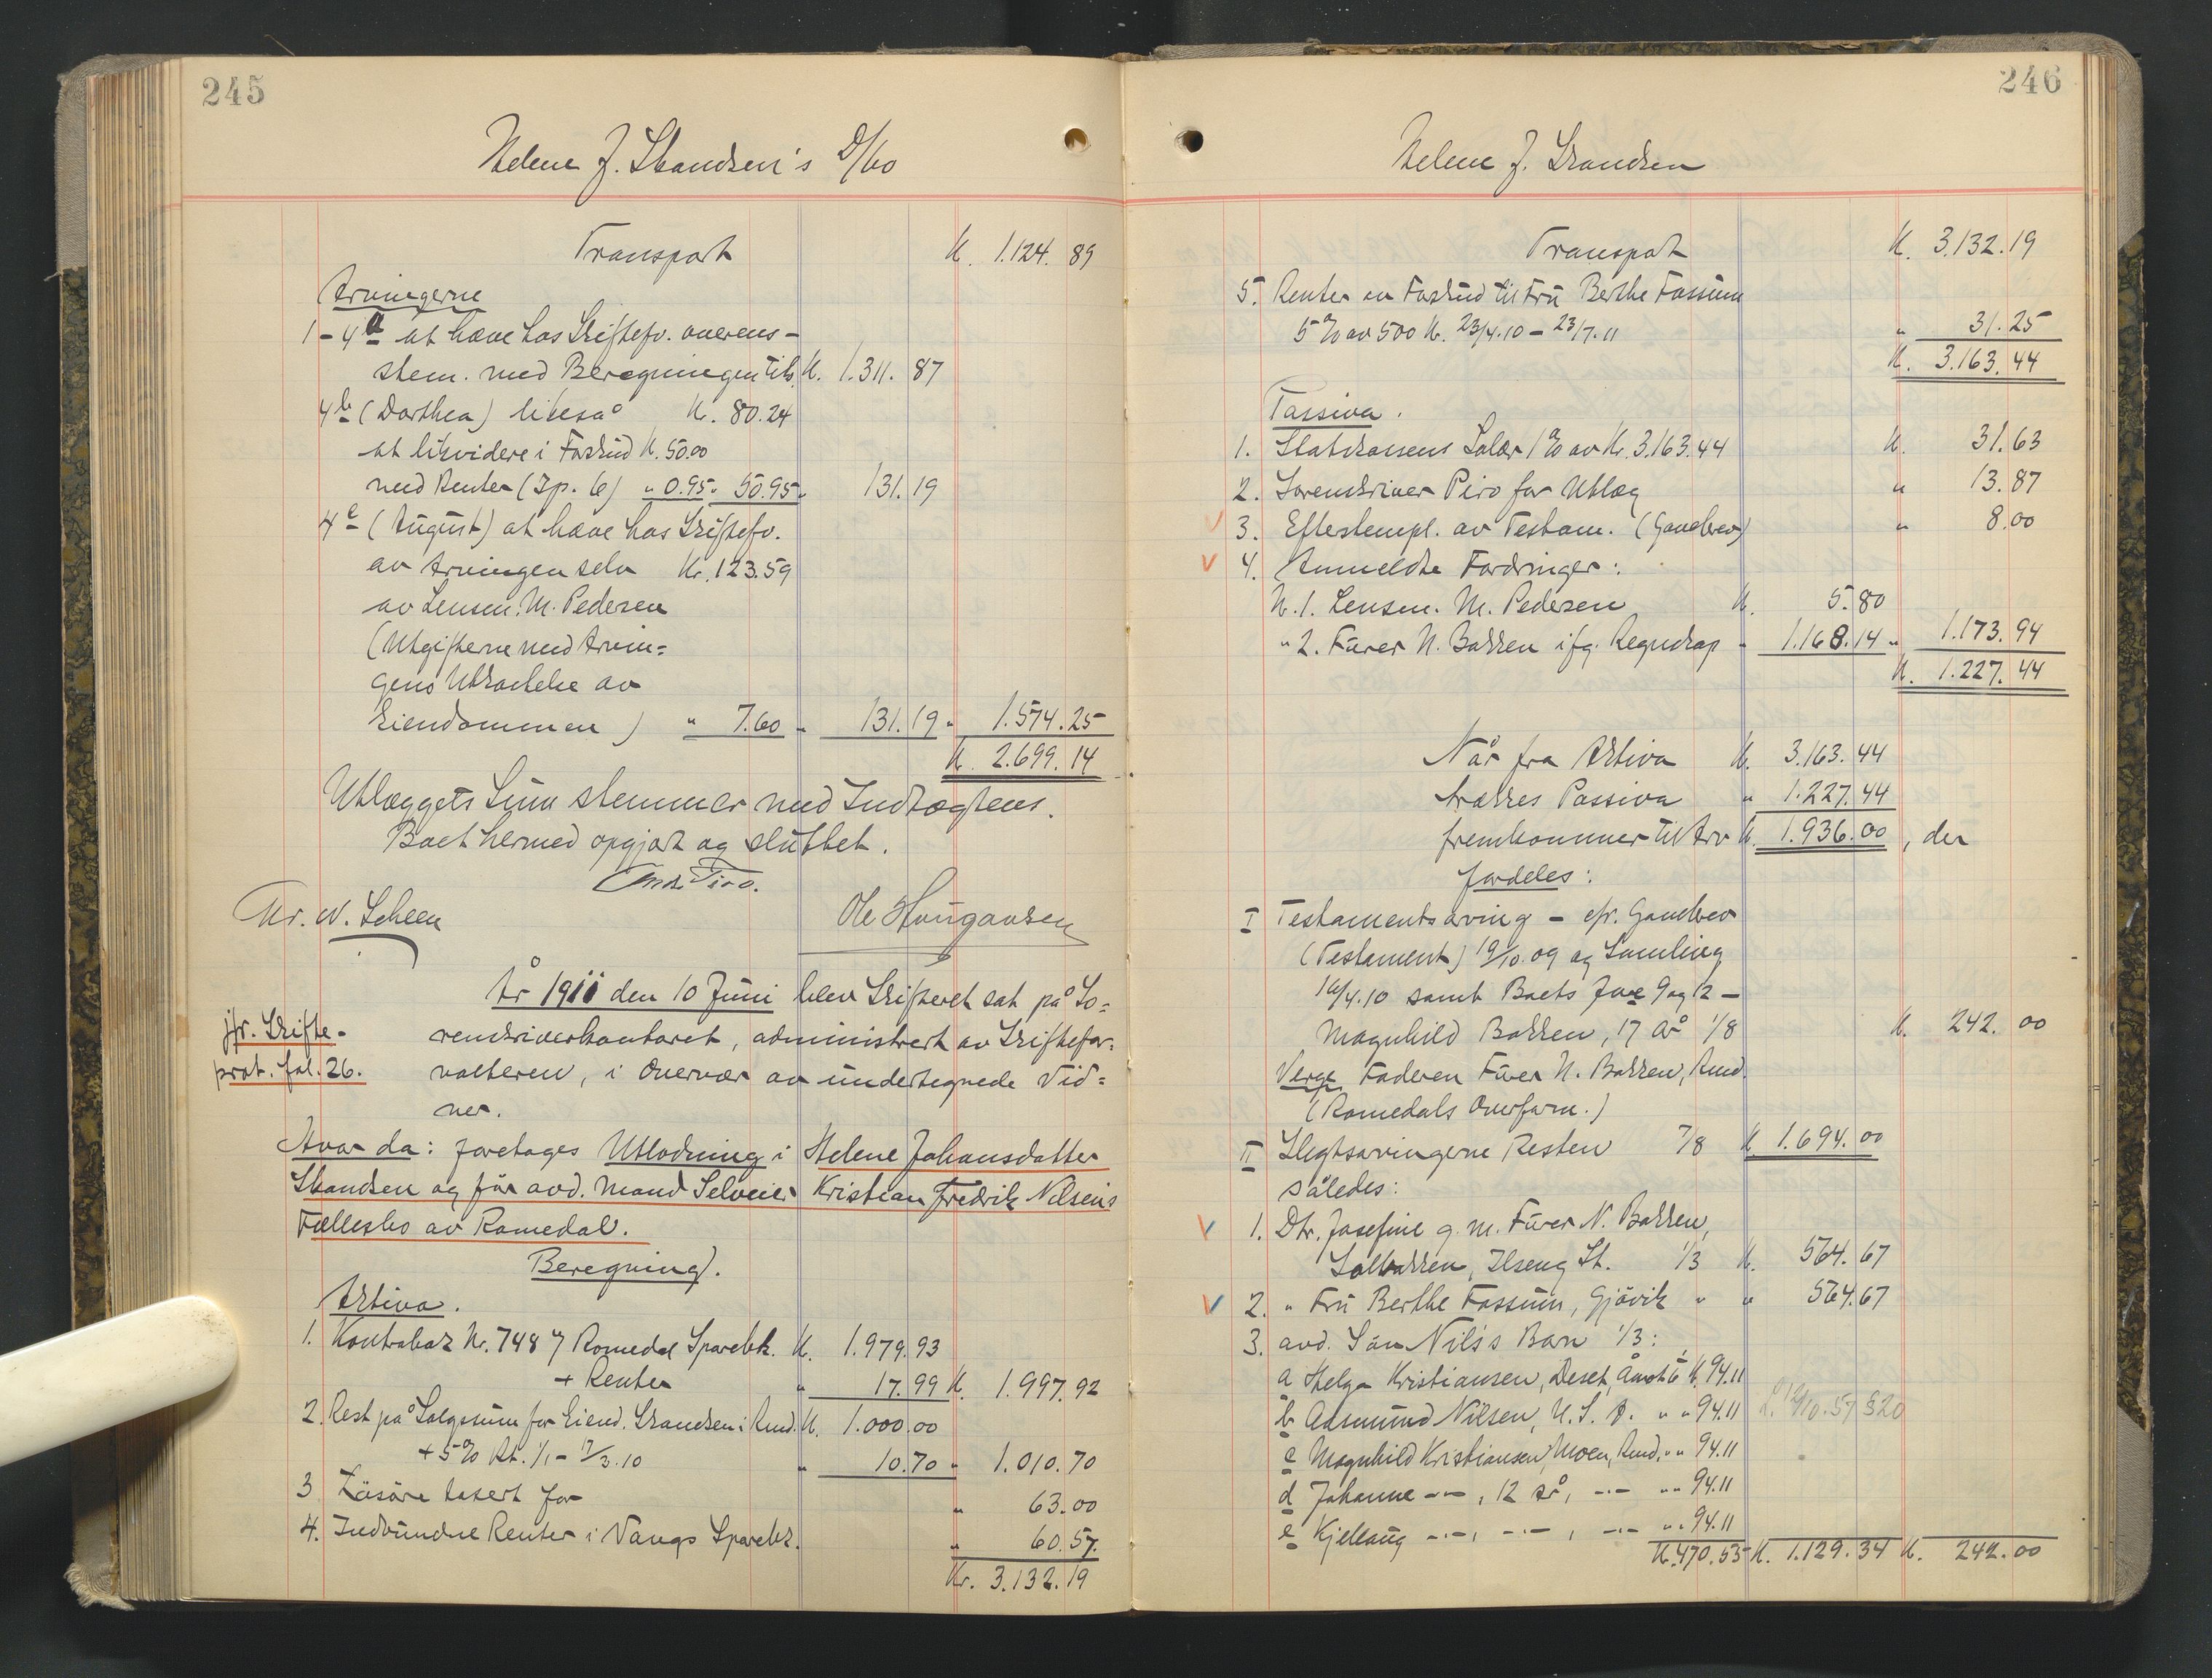 245
Helene J. Skandsen's D/bo
Transport K. 1.124.89
Arvingerne
1-4a at hæve hos Skiftefv. overens-
stem. med Beregningen tils. K. 1.311.87
4b (Dorthea) likeså K. 80.24
at likvidere i Forskud K. 50.00
med Renter (Ip. 6) " 0.95 " 50.95 " 131.19
4c (August) at hæve hos Skiftefv.
av Arvingen selv Kr. 123.59
av Lensm. M. Pedersen
(Utgifterne med Arvin=
gens Utkastelse av
Eiendommen) " 7.60 " 131.19 " 1.574.25
K. 2.699.14
Utlæggets Sum stemmer med Indtægtens.
Boet hermed opgjort og sluttet.
Chr. W. Scheen
Ole Haugansen
År 1911 den 10 Juni blev Skifteret sat på So=
jfr. Skifte-
prot. fol. 26.
renskriverkontoret, administrert av Skiftefor=
valteren, i Overvær av undertegnede Vid=
ner.
Hvor da: foretages Utlodning i Helene Johansdatter
Skandsen og før avd. Mand Selveier Kristian Fredrik Nilsens
Fællesbo av Romedal.
Beregning.
Aktiva.
1. Kontrabok Nr. 748 i Romedal Sparebk. K. 1.979.93
+ Renter " 17.99 K. 1.997.92
2. Rest på Salgssum for Eiend. Skandsen i Rmd. K. 1.000.00
+ 5% Rt. 1/1 - 17/3.10 " 10.70 " 1.010.70
3. Løsøre taxert for " 63.00
4. Indvundne Renter i Vangs Sparebk. " 60.57.
Kr. 3.132.19
246
Helene J. Skandsen
Transpot K. 3.132.19
5. Renter av Forskud til Fru Berthe Fossum
5% av 500 K. 23/4.10 - 23/7.11 " 31.25
K. 3.163.44
Passiva.
1. Statskassens Salær 1% av Kr. 3.163.44 K. 31.63
2. Sorenskriver Piro for Utlæg " 13.87
3. Efterstempl. av Testam. (Gavebrev) " 8.00
4. Anmeldte Fordringer:
N. 1. Lensm. M. Pedersen K. 5.80
" 2. Furer N. Bakken ifg. Regnskap " 1.168.14 " 1.173.94
K. 1.227.44
Når fra Aktiva K. 3.163.44
trækkes Passiva " 1.227.44
fremkommer til Arv K. 1.936.00, der
fordeles:
I Testamentsarving - cfr. Gavebrev
(Testament) 19/10.09 og Samling
16/4.10 samt Boets Jne 9 og 12 -
Magnhild Bakken, 17 år 1/8 K. 242.00
Verge Faderen Furer N. Bakken, Rmd.
(Romedals Overform.)
II Slegtsarvingerne Resten 7/8 K. 1.694.00
således:
1. Dtr. Josefine g. m. Furer N. Bakken,
Solbakken, Ilseng St. 1/3 K. 564.67
2. " Fru Berthe Fossum, Gjøvik " " 564.67
3. avd. Søn Nils's Barn 1/3:
a Helga Kristiansen, Deset, Åmot K. 94.11
b Aasmund Nilsen, U. S. A. " " 94.11
c Magnhild Kristiansen, Moen, Rmd. " " 94.11
d Johanne -"-, 12 år, -"- " " 94.11
e Kjellaug -"-, -"-, -"- " " 94.11
K. 470.55 K. 1.129.34 K. 242.00